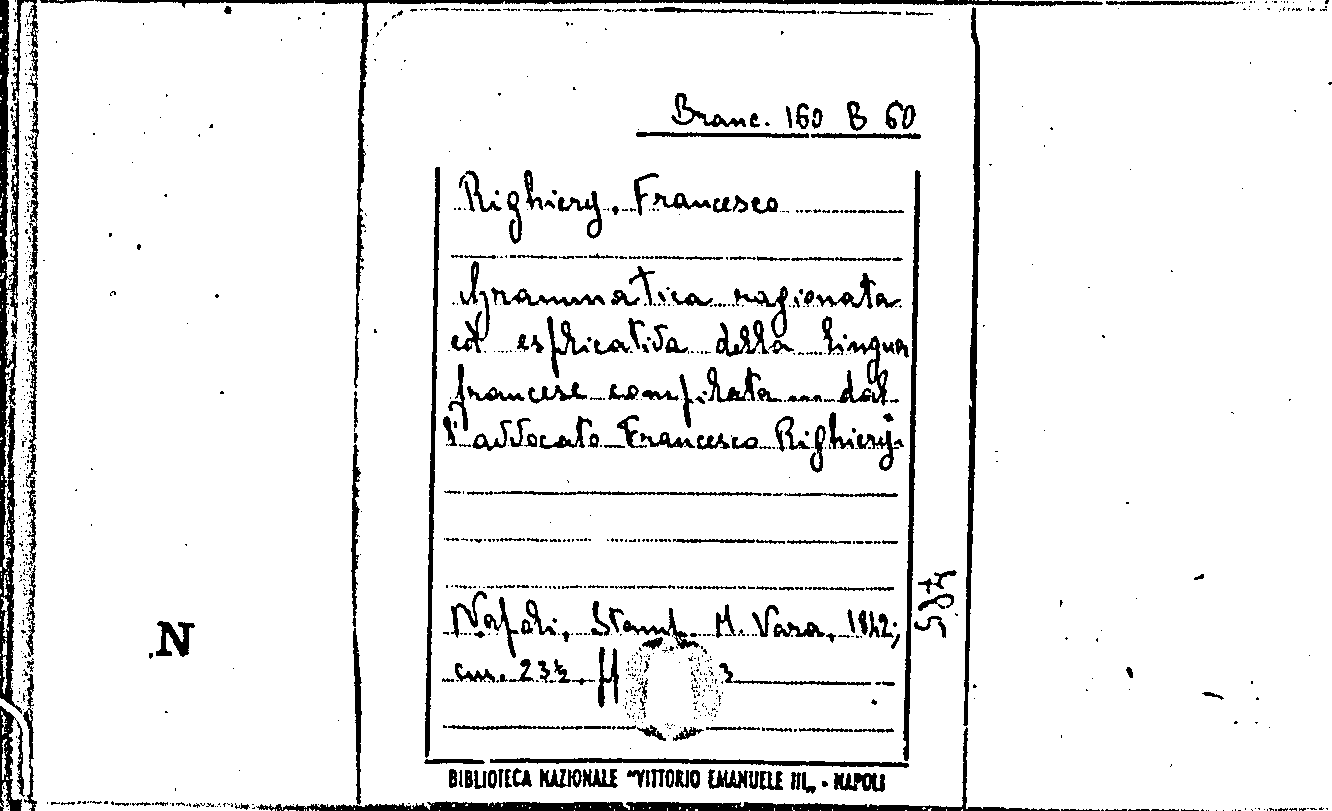 Branc. 160 B 60
Righiery, Francesco
Grammatica ragionata
ed esplicativa della lingua
francese compilata ... dal
l'avvocato Francesco Righiery.
Napoli, Stamp. M. Vara, 1842;
cm. 23½.
N
BIBLIOTECA NAZIONALE "VITTORIO EMANUELE III„ - NAPOLI